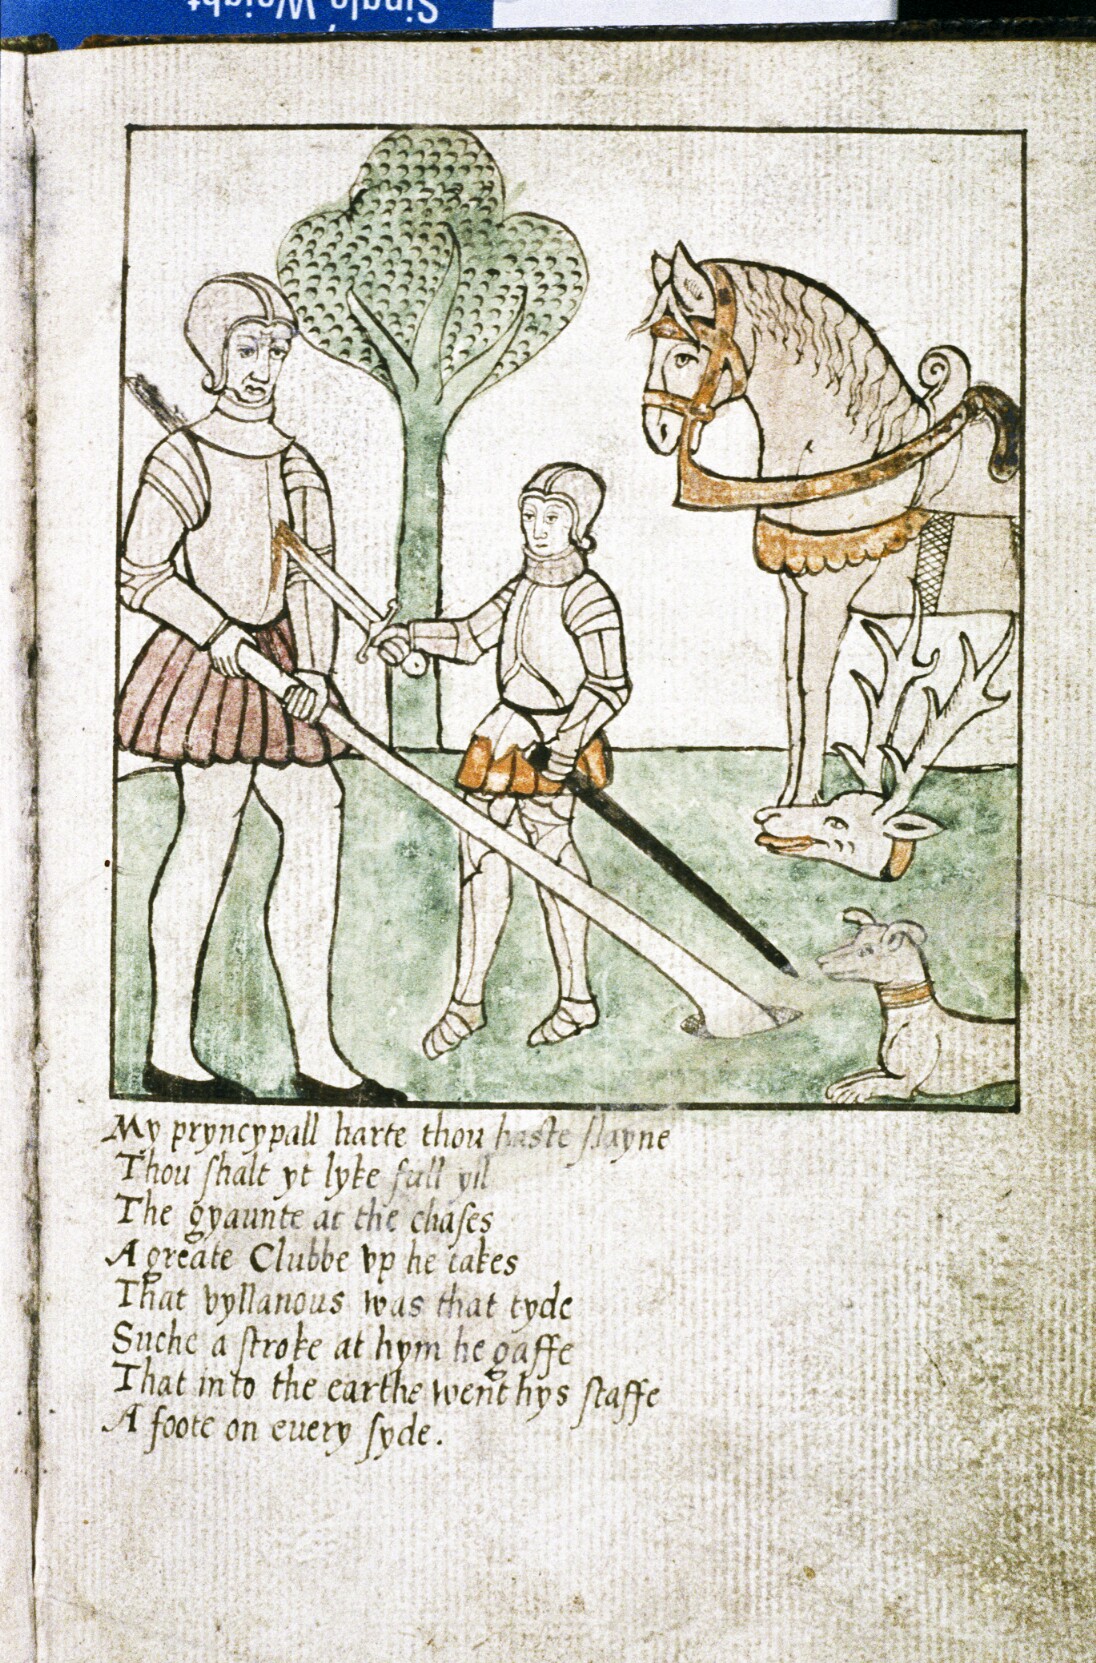 Single Weight
My pryncypall harte thou haste slayne
Thou shalt yt lyke full yll
The gyaunte at the chases
A greate Clubbe vp he takes
That vyllanous was that tyde
Suche a stroke at hym he gaffe
That into the earthe went hys staffe
A foote on euery syde.